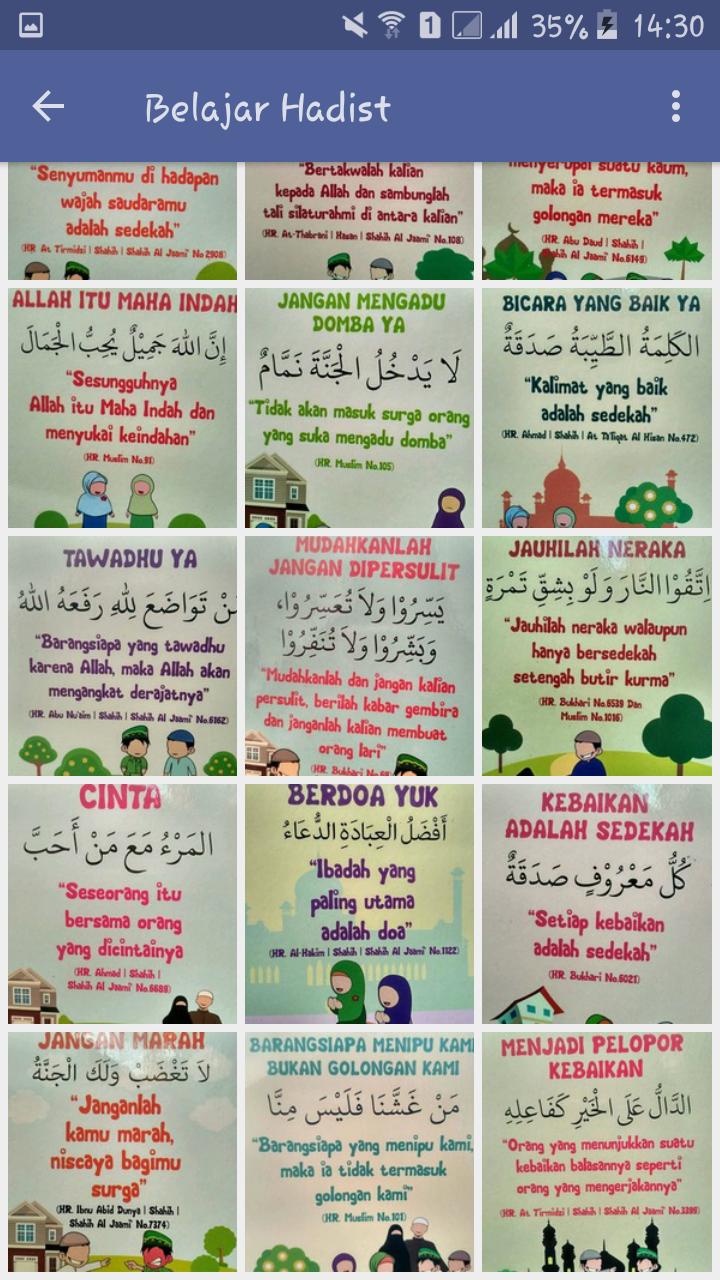 35% 14:30
Belajar Hadist
“Senyumanmu di hadapan
wajah saudaramu
adalah sedekah”
(HR. At. Tirmidzi | Shahih | Shahih Al Jaami' No.2908)
“Bertakwalah kalian
kepada Allah dan sambunglah
tali silaturahmi di antara kalian”
(HR. At-Thabrani | Hasan | Shahih Al Jaami' No.108)
menyerupai suatu kaum,
maka ia termasuk
golongan mereka”
(HR. Abu Daud | Shahih |
Shahih Al Jaami' No.6149)
ALLAH ITU MAHA INDAH
إِنَّ اللهَ جَمِيْلٌ يُحِبُّ الْجَمَالَ
“Sesungguhnya
Allah itu Maha Indah dan
menyukai keindahan”
(HR. Muslim No.91)
JANGAN MENGADU
DOMBA YA
لَا يَدْخُلُ الْجَنَّةَ نَمَّامٌ
“Tidak akan masuk surga orang
yang suka mengadu domba”
(HR. Muslim No.105)
BICARA YANG BAIK YA
الكَلِمَةُ الطَّيِّبَةُ صَدَقَةٌ
“Kalimat yang baik
adalah sedekah”
(HR. Ahmad | Shahih | At Ta'liqat Al Hisan No.472)
TAWADHU YA
مَنْ تَوَاضَعَ لِلّٰهِ رَفَعَهُ اللهُ
“Barangsiapa yang tawadhu
karena Allah, maka Allah akan
mengangkat derajatnya”
(HR. Abu Nu'aim | Shahih | Shahih Al Jaami' No.6162)
MUDAHKANLAH
JANGAN DIPERSULIT
يَسِّرُوْا وَلاَ تُعَسِّرُوْا،
وَبَشِّرُوْا وَلاَ تُنَفِّرُوْا
“Mudahkanlah dan jangan kalian
persulit, berilah kabar gembira
dan janganlah kalian membuat
orang lari”
(HR. Bukhari No.
JAUHILAH NERAKA
اِتَّقُوْا النَّارَ وَلَوْ بِشِقِّ تَمْرَةٍ
“Jauhilah neraka walaupun
hanya bersedekah
setengah butir kurma”
(HR. Bukhari No.6539 Dan
Muslim No.1016)
CINTA
المَرْءُ مَعَ مَنْ أَحَبَّ
“Seseorang itu
bersama orang
yang dicintainya
(HR. Ahmad | Shahih |
Shahih Al Jaami' No.6689)
BERDOA YUK
أَفْضَلُ الْعِبَادَةِ الدُّعَاءُ
“Ibadah yang
paling utama
adalah doa”
(HR. Al-Hakim | Shahih | Shahih Al Jaami' No.1122)
KEBAIKAN
ADALAH SEDEKAH
كُلُّ مَعْرُوْفٍ صَدَقَةٌ
“Setiap kebaikan
adalah sedekah”
(HR. Bukhari No.6021)
JANGAN MARAH
لاَ تَغْضَبْ وَلَكَ الْجَنَّةُ
“Janganlah
kamu marah,
niscaya bagimu
surga”
(HR. Ibnu Abid Dunya | Shahih |
Shahih Al Jaami' No.7374)
BARANGSIAPA MENIPU KAMI
BUKAN GOLONGAN KAMI
مَنْ غَشَّنَا فَلَيْسَ مِنَّا
“Barangsiapa yang menipu kami,
maka ia tidak termasuk
golongan kami”
(HR. Muslim No.101)
MENJADI PELOPOR
KEBAIKAN
الدَّالُّ عَلَى الْخَيْرِ كَفَاعِلِهِ
“Orang yang menunjukkan suatu
kebaikan balasannya seperti
orang yang mengerjakannya”
(HR. At. Tirmidzi | Shahih | Shahih Al Jaami' No.3399)